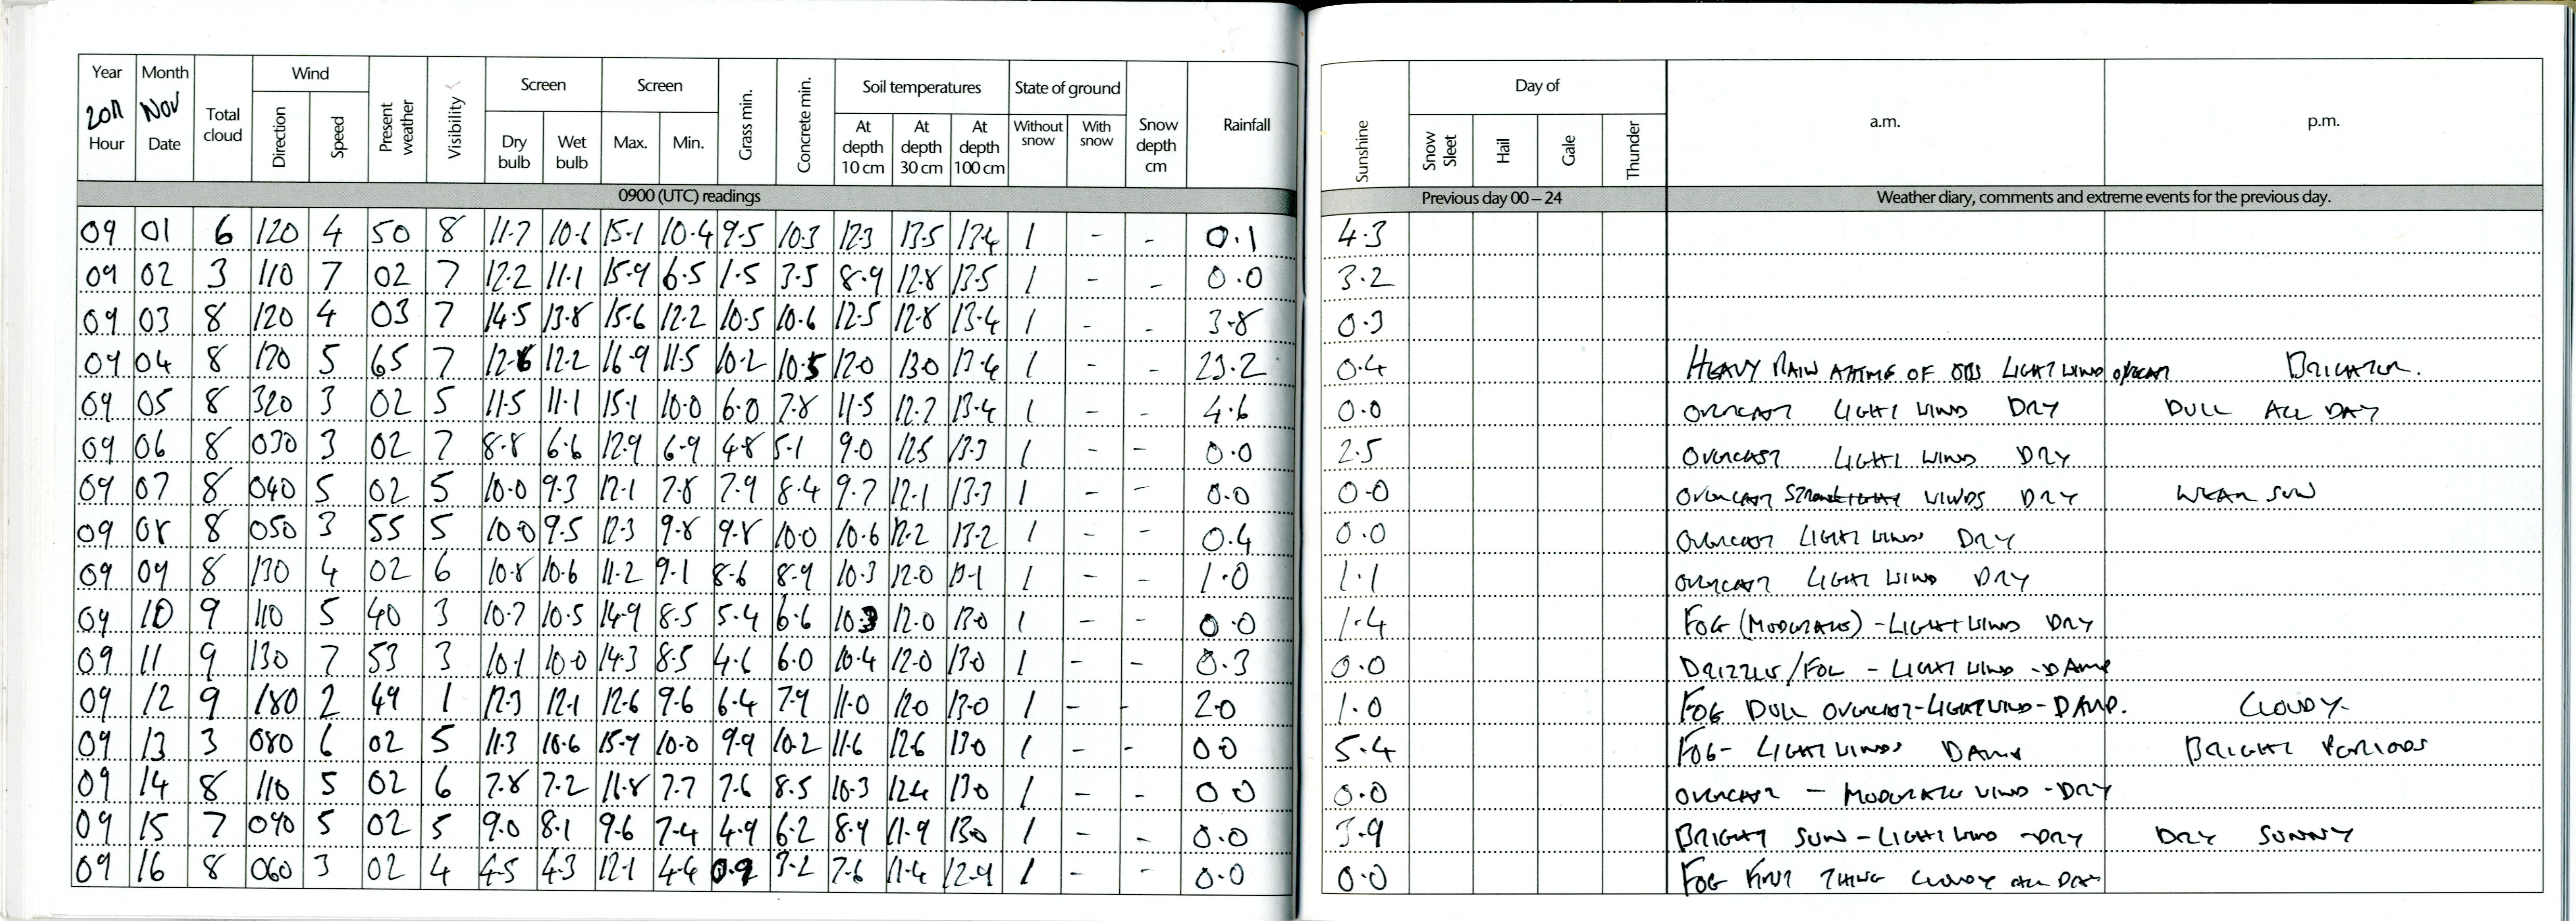 Year Month Total cloud Wind Present weather Visibility Screen Screen Grass min. Concrete min. Soil temperatures State of ground Snow depth cm Rainfall Sunshine Day of a.m. p.m.
2011 Nov
Hour Date Direction Speed Dry bulb Wet bulb Max. Min. At depth 10 cm At depth 30 cm At depth 100 cm Without snow With snow Snow Sleet Hail Gale Thunder
0900 (UTC) readings Previous day 00 – 24 Weather diary, comments and extreme events for the previous day.
09 01 6 120 4 50 8 11.7 10.6 15.1 10.4 9.5 10.3 12.3 13.5 13.4 1 - - 0.1 4.3
09 02 3 110 7 02 7 12.2 11.1 15.9 6.5 1.5 3.5 8.9 12.8 13.5 1 - - 0.0 3.2
09 03 8 120 4 03 7 14.5 13.8 15.6 12.2 10.5 10.6 12.5 12.8 13.4 1 - - 3.8 0.3
09 04 8 120 5 65 7 12.6 12.2 16.9 11.5 10.2 10.5 12.0 13.0 13.4 1 - - 23.2 0.4 HEAVY RAIN AT TIME OF OBS LIGHT WIND BRIGHTER.
09 05 8 320 3 02 5 11.5 11.1 15.1 10.0 6.0 7.8 11.5 12.7 13.4 1 - - 4.6 0.0 OVERCAST LIGHT WIND DRY DULL ALL DAY
09 06 8 030 3 02 7 8.8 6.6 12.9 6.9 4.8 5.1 9.0 12.5 13.3 1 - - 0.0 2.5 OVERCAST LIGHT WIND DRY
09 07 8 040 5 02 5 10.0 9.3 12.1 7.8 7.9 8.4 9.7 12.1 13.3 1 - - 0.0 0.0 OVERCAST WINDS DRY WEAK SUN
09 08 8 050 3 55 5 10.0 9.5 12.3 9.8 9.8 10.0 10.6 12.2 13.2 1 - - 0.4 0.0 OVERCAST LIGHT WINDS DRY
09 09 8 130 4 02 6 10.8 10.6 11.2 9.1 8.6 8.9 10.3 12.0 13.1 1 - - 1.0 1.1 OVERCAST LIGHT WIND DRY
09 10 9 110 5 40 3 10.7 10.5 14.9 8.5 5.4 6.6 10.3 12.0 13.0 1 - - 0.0 1.4 FOG (MODERATE) - LIGHT WIND DRY
09 11 9 130 7 53 3 10.1 10.0 14.3 8.5 4.6 6.0 10.4 12.0 13.0 1 - - 0.3 0.0 DRIZZLE/FOG - LIGHT WIND - DAMP
09 12 9 180 2 49 1 12.3 12.1 12.6 9.6 6.4 7.9 11.0 12.0 13.0 1 - - 2.0 1.0 FOG DULL OVERCAST - LIGHT WIND - DAMP. CLOUDY-
09 13 3 080 6 02 5 11.3 10.6 15.9 10.0 9.9 10.2 11.6 12.6 13.0 1 - - 0.0 5.4 FOG - LIGHT WINDS DAMP BRIGHT PERIODS
09 14 8 110 5 02 6 7.8 7.2 11.8 7.7 7.6 8.5 10.3 12.4 13.0 1 - - 0.0 0.0 OVERCAST - MODERATE WIND - DRY
09 15 7 090 5 02 5 9.0 8.1 9.6 7.4 4.9 6.2 8.9 11.9 13.0 1 - - 0.0 3.9 BRIGHT SUN - LIGHT WIND - DRY DRY SUNNY
09 16 8 060 3 02 4 4.5 4.3 12.1 4.4 0.9 3.2 7.6 11.4 12.9 1 - - 0.0 0.0 FOG FIRST THING CLOUDY ALL DAY